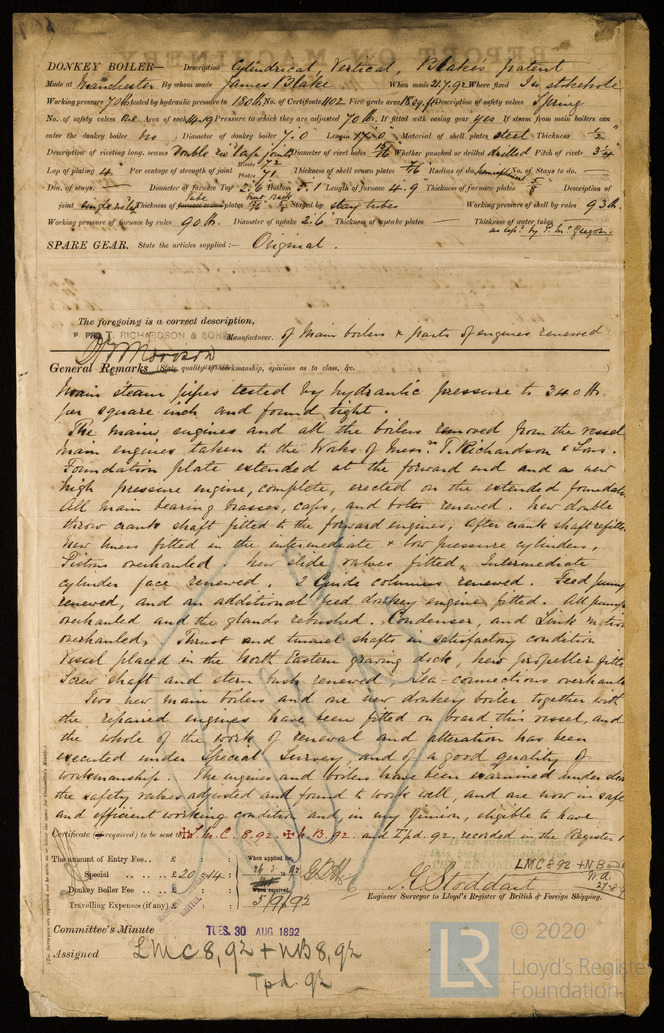 DONKEY BOILER— Description Cylindrical, Vertical, Blake's patent
Made at Manchester By whom made James Blake When made 21.7.92 Where fixed In stokehole
Working pressure 70 lb tested by hydraulic pressure to 180 lb No. of Certificate 1102 Fire grate area 18 sq. ft Description of safety valves Spring
No. of safety valves one Area of each 14.19 Pressure to which they are adjusted 70 lb. If fitted with easing gear yes If steam from main boilers can
enter the donkey boiler no Diameter of donkey boiler 7.0 Length 17.0 Material of shell plates steel Thickness ½"
Description of riveting long. seams Double riv lap joints Diameter of rivet holes 13/16 Whether punched or drilled drilled Pitch of rivets 3¼"
Lap of plating 4" Per centage of strength of joint Rivets 72 Plates 71 Thickness of shell crown plates Radius of do. No. of Stays to do. —
Dia. of stays. — Diameter of furnace Top 2.6 Bottom 5.1 Length of furnace 4.9 Thickness of furnace plates Description of
joint single lap Thickness of tube plates Stayed by stay tubes Working pressure of shell by rules 93 lb.
Working pressure of furnace by rules 90 lb. Diameter of uptake 2.6 Thickness of uptake plates — Thickness of water tubes
as rep.d by P. McGregor.
SPARE GEAR. State the articles supplied :— Original.
The foregoing is a correct description,
PRO T. RICHARDSON & SONS Manufacturer. of main boilers & parts of engines renewed
D. Morison
General Remarks (State quality of workmanship, opinions as to class, &c. )
Main steam pipes tested by hydraulic pressure to 340 lb.
per square inch and found tight.
The main engines and all the boilers removed from the vessel
Main engines taken to the Works of Messrs T. Richardson & Sons.
Foundation plate extended at the forward end and as new
high pressure engine, complete, erected on the extended foundation
All main bearing brasses, caps, and bolts renewed. New double
throw crank shaft fitted to the forward engines, after crank shaft refitted
New liners fitted in the intermediate & low pressure cylinders,
Pistons overhauled new slide valves fitted. Intermediate
cylinder face renewed. 2 Guide columns renewed. Feed pump
renewed, and an additional feed donkey engine fitted. All pumps
overhauled and the glands rebushed. Condenser, and Link motion
overhauled, Thrust and tunnel shafts in satisfactory condition
Vessel placed in the North Eastern graving dock, new propeller fitted
Screw shaft and stern bush renewed. Sea-connections overhauled
Two new main boilers and one new donkey boiler together with
the repaired engines have been fitted on board this vessel, and
the whole of the work of renewal and alteration has been
executed under Special Survey, and of a good quality of
workmanship. The engines and boilers have been examined under steam
the safety valves adjusted and found to work well, and are now in safe
and efficient working condition and, in my opinion, eligible to have
Certificate (if required) to be sent to ✠ L.M.C 8.92. ✠ N.B. 92 and Tpd. 92, recorded in the Register
The amount of Entry Fee.. £ : : When applied for,
Special .. .. £20 : 14 : 26.8.92
Donkey Boiler Fee .. .. £ : : When received,
Travelling Expenses (if any) £ : : 5/9/92
LMC 8 92 + NB
J. Stoddart
Engineer Surveyor to Lloyd's Register of British & Foreign Shipping.
Committee's Minute TUES. 30 AUG 1892
Assigned LMC 8,92 + NB 8,92
Tpd. 92
© 2020
LR Lloyd's Register
Foundation